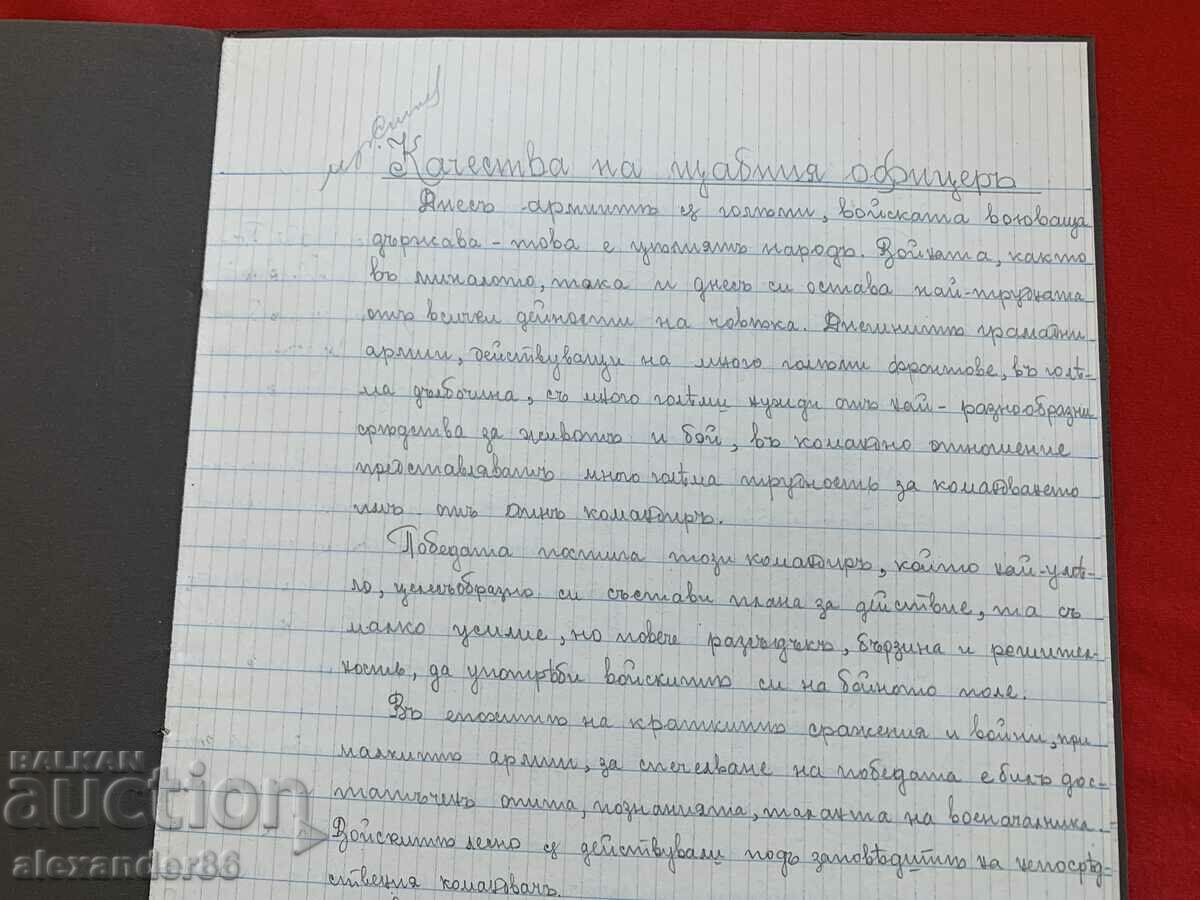 Качества на щабния офицеръ
Днесъ армиитѣ сѫ голѣми, войската воюваща
държава - това е цѣлиятъ народъ. Войната, както
въ миналото, така и днесъ си остава най-трудната
отъ всички дейности на човѣка. Днешнитѣ грамадни
армии, действуващи на много голѣми фронтове, въ голѣ-
ма дълбочина, съ много голѣми нужди отъ най-разнообразни
срѣдства за животъ и бой, въ командно отношение
представляватъ много голѣма трудность за командването
имъ отъ единъ командиръ.
Победата постига този командиръ, който най-умѣ-
ло, целесъобразно си състави плана за действие, та съ
малко усилие, но повече разсѫдъкъ, бързина и решител-
ность, да употрѣби войскитѣ си на бойното поле.
Въ епохитѣ на краткитѣ сражения и войни, при
малкитѣ армии, за спечелване на победата е билъ дос-
татъченъ опита, познанията, таланта на военачалника.
Войскитѣ лесно сѫ действували подъ заповѣдитѣ на непосрѣд-
ствения командвачъ.
BALKAN
auction
alexander86